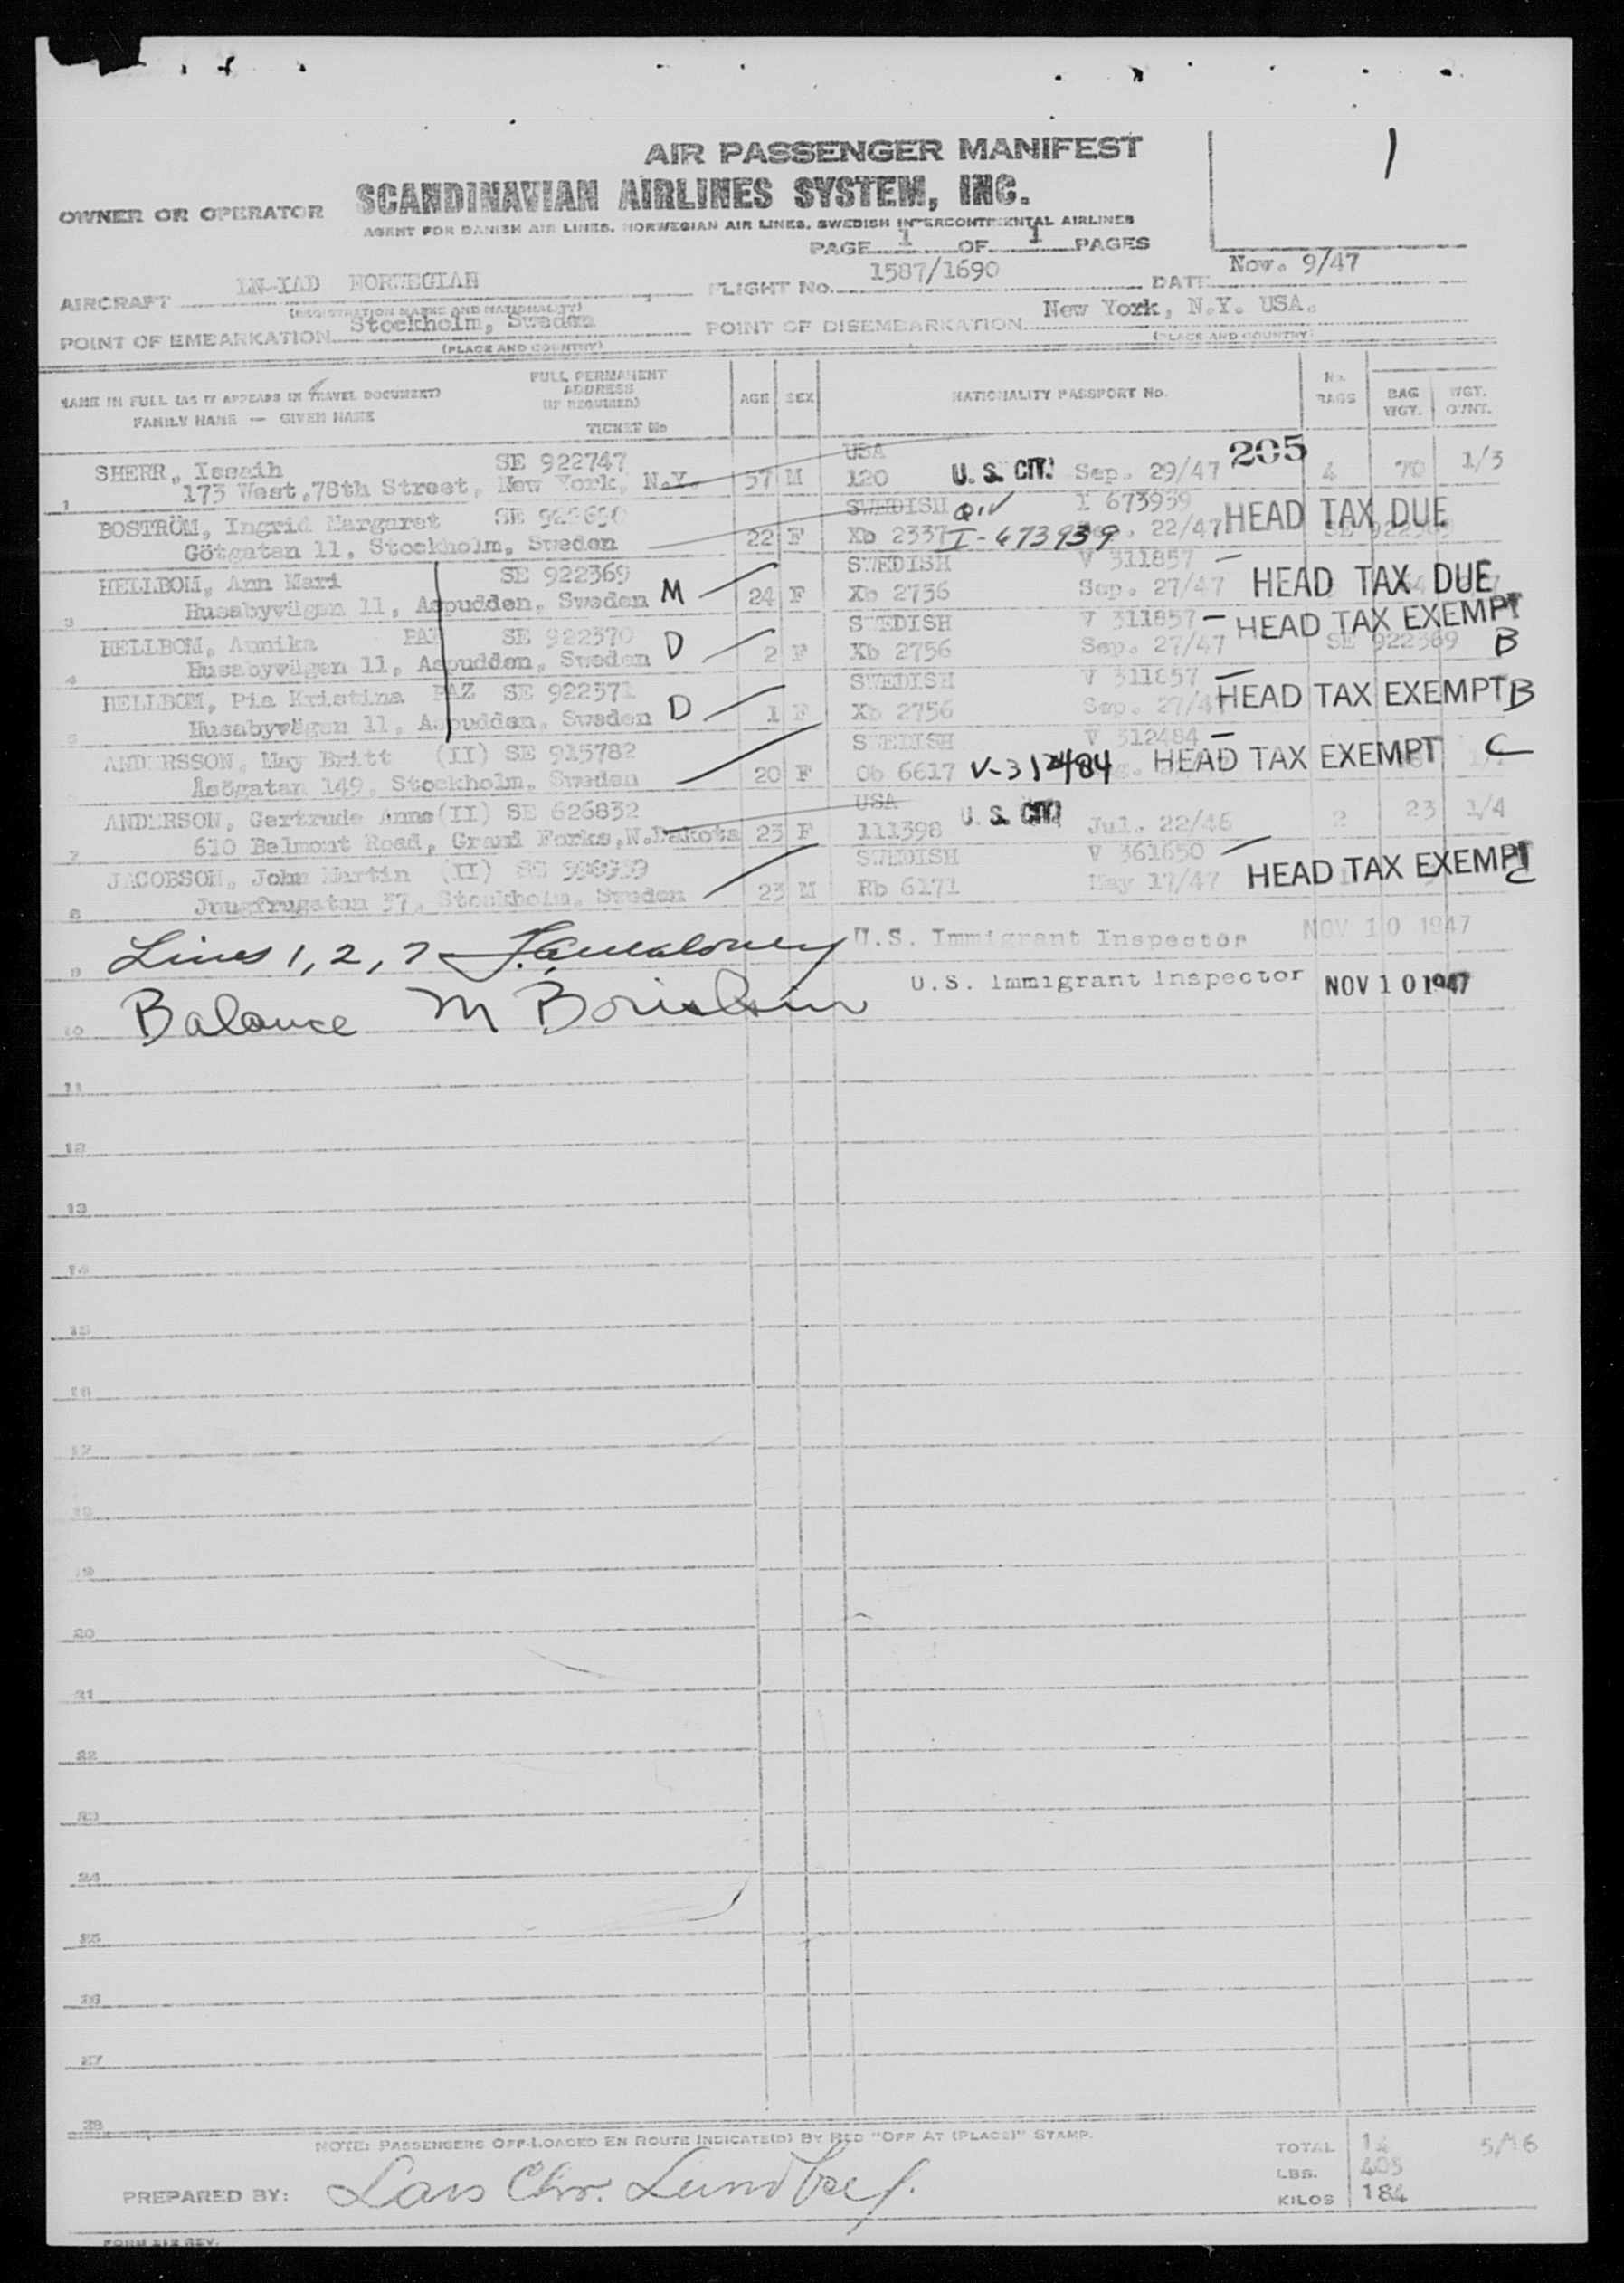 1
AIR PASSENGER MANIFEST
OWNER OR OPERATOR SCANDINAVIAN AIRLINES SYSTEM, INC.
AGENT FOR DANISH AIR LINES, NORWEGIAN AIR LINES, SWEDISH INTERCONTINENTAL AIRLINES
PAGE 1 OF 1 PAGES
AIRCRAFT NORWEGIAN FLIGHT No. 1587/1690 DATE Nov. 9/47
(REGISTRATION MARKS AND NATIONALITY)
POINT OF EMBARKATION Stockholm, Sweden POINT OF DISEMBARKATION New York, N.Y. USA.
(PLACE AND COUNTRY) (PLACE AND COUNTRY)
NAME IN FULL (AS IT APPEARS IN TRAVEL DOCUMENT) FULL PERMANENT ADDRESS (IF REQUIRED) AGE SEX NATIONALITY PASSPORT No. No. BAGS BAG WGT. WGT. OVWT.
FAMILY NAME — GIVEN NAME TICKET No
SHERR, Issaih SE 922747 USA 205
1 173 West.78th Street, New York, N.Y. 57 M 120 U. S. CIT. Sep. 29/47 4 70 1/3
BOSTRÖM, Ingrid Margaret SWEDISH Q.V I 673939 HEAD TAX DUE
Götgatan 11, Stockholm, Sweden 22 F Xb 2337 I-673939 22/47
HELLBOM, Ann Mari SE 922369 SWEDISH V 311857
3 Husabyvägen 11, Aspudden, Sweden M 24 F Xb 2756 Sep. 27/47 HEAD TAX DUE
HELLBOM, Annika SE 922370 SWEDISH V 311857 HEAD TAX EXEMPT
4 Husabyvägen 11, Aspudden, Sweden D 2 F Xb 2756 Sep. 27/47 SE 922369 B
HELLBOM, Pia Kristina PAZ SE 922371 SWEDISH V 311857
5 Husabyvägen 11, Aspudden, Sweden D 1 F Xb 2756 Sep. 27/47 HEAD TAX EXEMPT B
ANDERSSON, May Britt (II) SE 915782 SWEDISH V 312484
Åsögatan 149, Stockholm, Sweden 20 F Ob 6617 V-312484 HEAD TAX EXEMPT C
ANDERSON, Gertrude Anne (II) SE 626832 USA U. S. CIT.
7 610 Belmont Road, Grand Forks, N.Dakota 23 F 111398 Jul. 22/46 2 23 1/4
JACOBSON, John Martin (II) SWEDISH V 361650
8 Jungfrugatan 37, Stockholm, Sweden 23 M Rb 6171 May 17/47 HEAD TAX EXEMPT C
9 Lines 1, 2, 7 U.S. Immigrant Inspector NOV 10 1947
10 Balance M U.S. Immigrant Inspector NOV 10 1947
11
12
13
14
15
16
17
18
19
20
21
22
23
24
25
26
27
28
NOTE: PASSENGERS OFF-LOADED EN ROUTE INDICATE(D) BY RED "OFF AT (PLACE)" STAMP.
TOTAL
LBS. 405
PREPARED BY: Lars Chr. Lundberg. KILOS 184